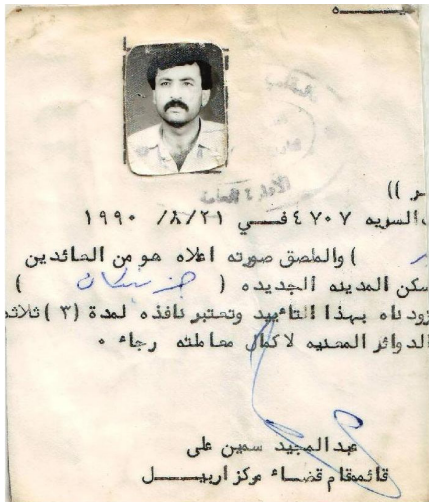 ـه
ـر ))
السريه ٤٧٠٧ فـــي ٢١/ ٨/ ١٩٩٠
) والملصق صورته اعلاه هو من العائدين
سكن المدينه الجديده ( )
زودناه بهذا التأييد وتعتبر نافذه لمدة (٣) ثلاثة
الدوائر المعنيه لاكمال معاملته رجاء ٠
عبدالمجيد سمين على
قائممقام قضـــاء مركز اربيـــــل